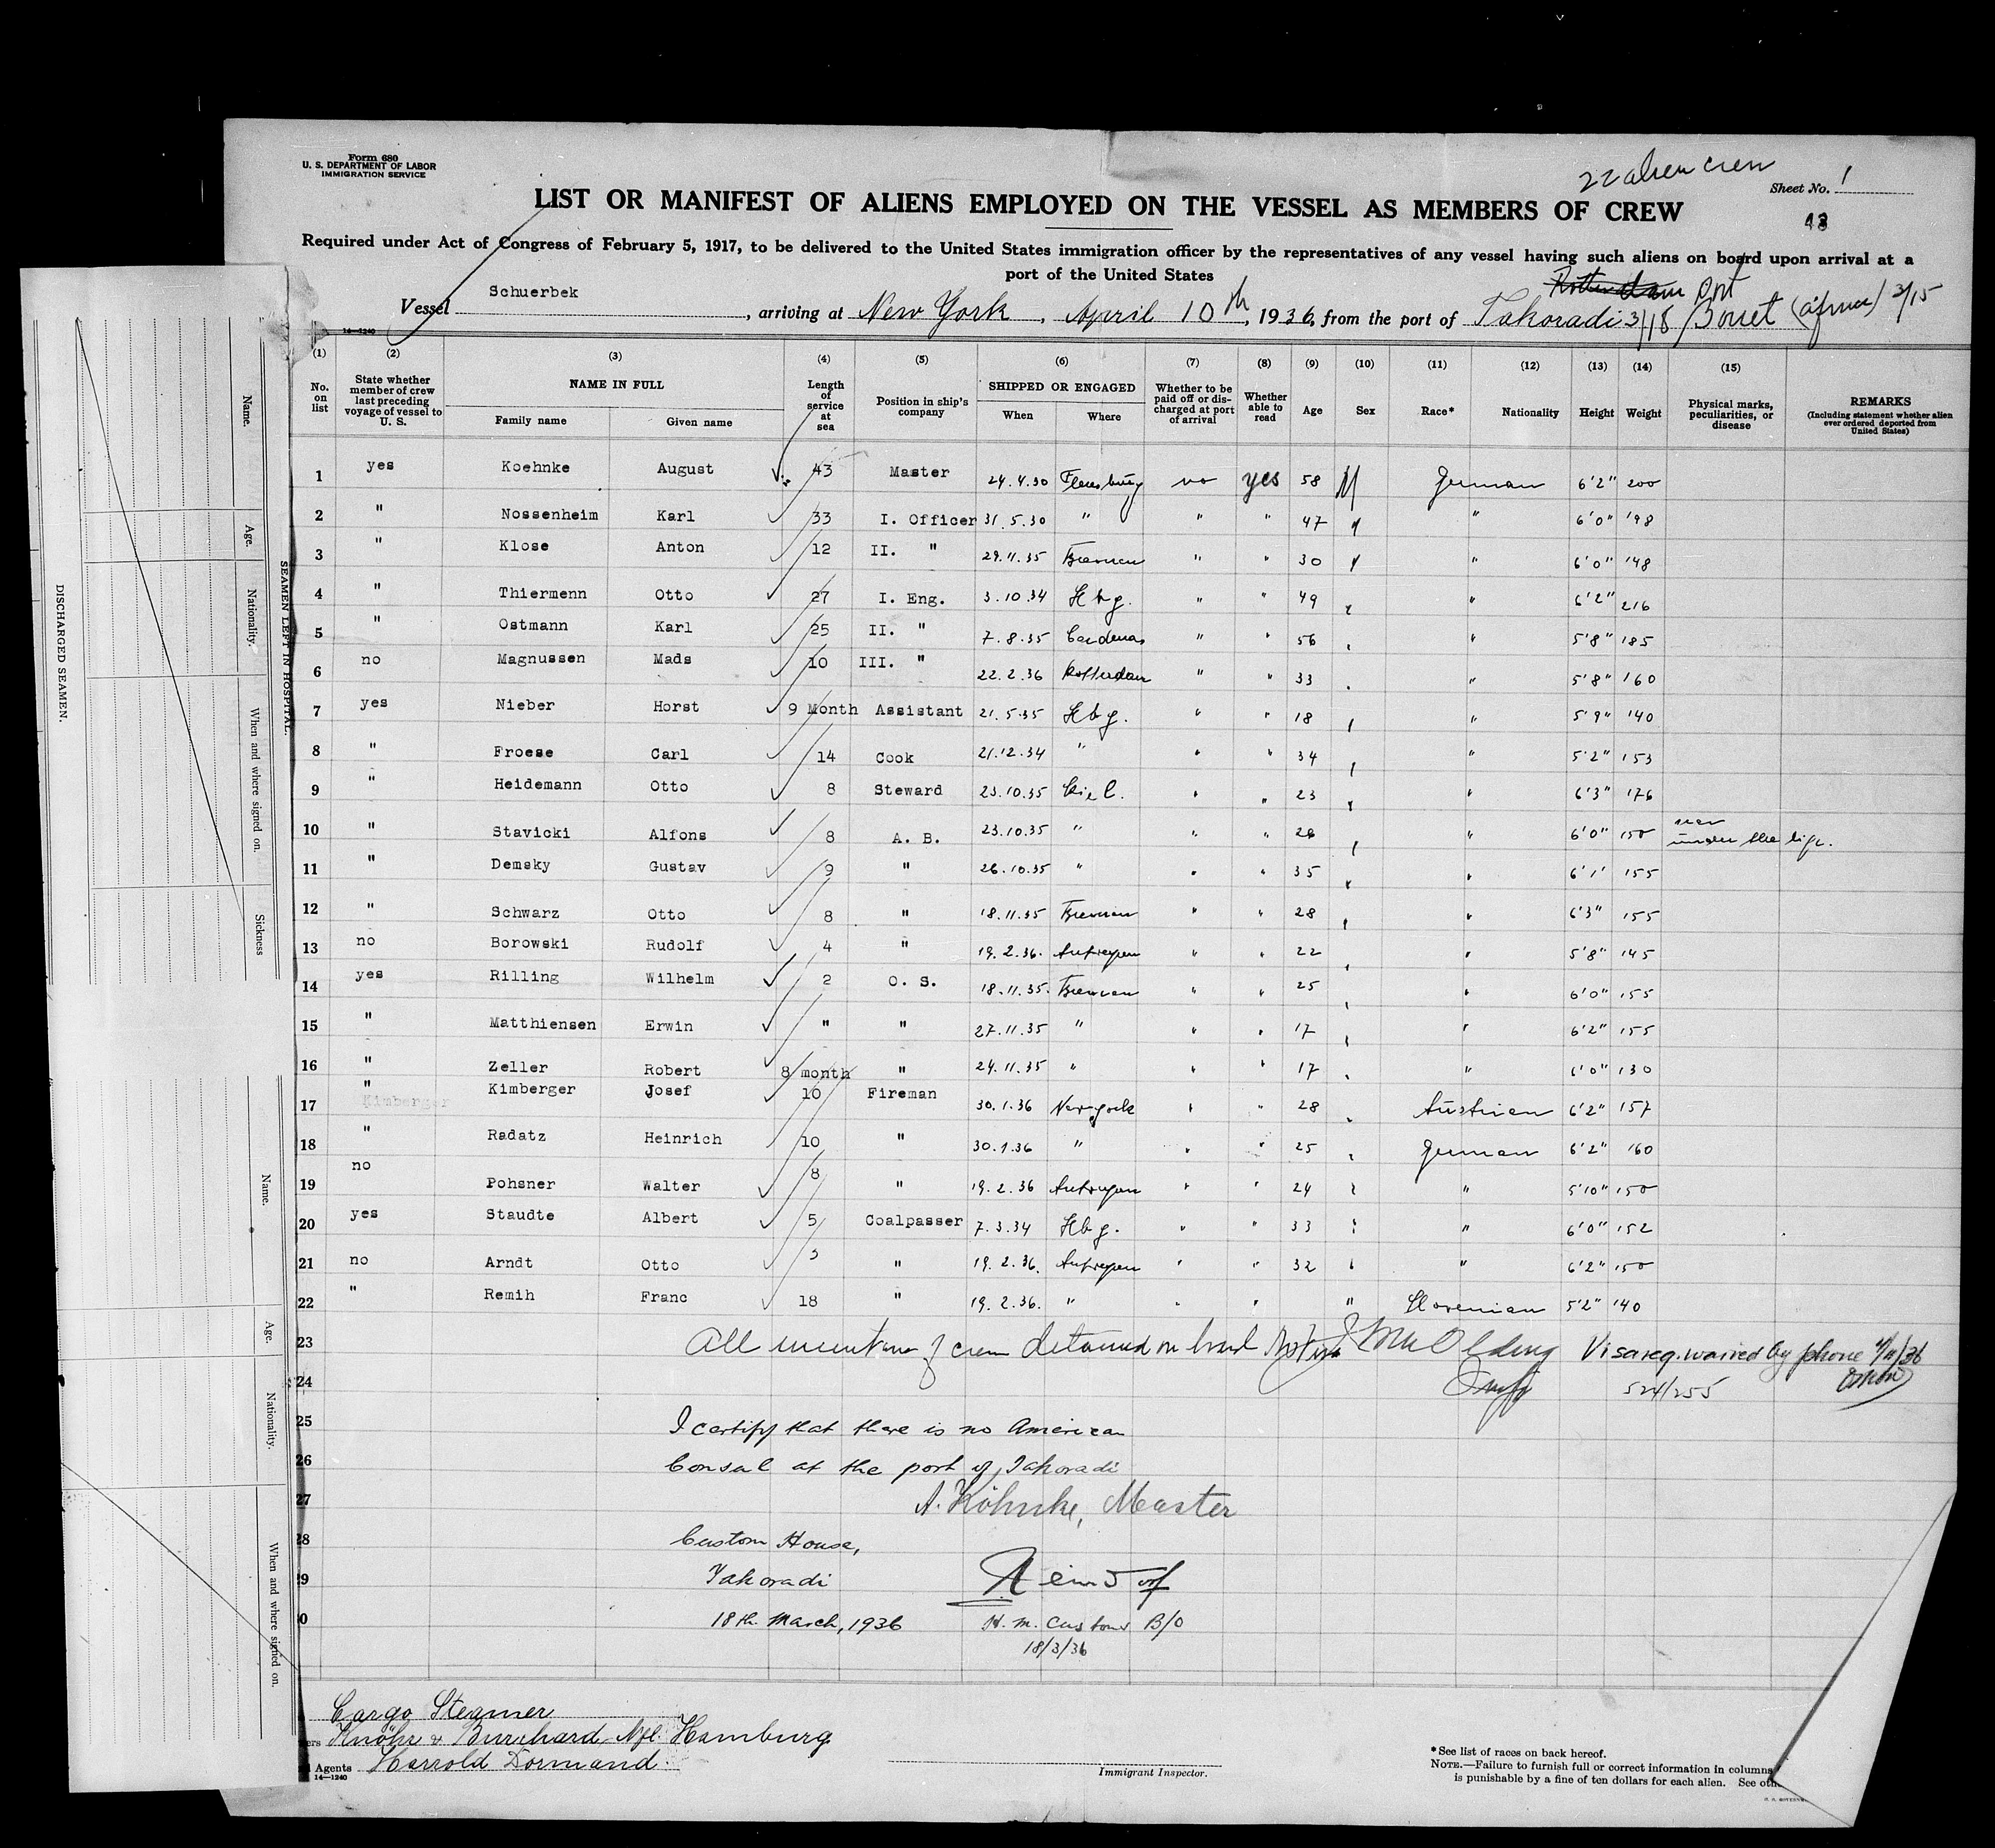 Form 680
U. S. DEPARTMENT OF LABOR
IMMIGRATION SERVICE
22 alien crew
Sheet No. 1
LIST OR MANIFEST OF ALIENS EMPLOYED ON THE VESSEL AS MEMBERS OF CREW
Required under Act of Congress of February 5, 1917, to be delivered to the United States immigration officer by the representatives of any vessel having such aliens on board upon arrival at a
port of the United States
Rotterdam Port
Vessel Schuerbek, arriving at New York, April 10th, 1936, from the port of Takoradi 3/18 / Bouet (africa) 3/15
14—1240
(1) (2) (3) (4) (5) (6) (7) (8) (9) (10) (11) (12) (13) (14) (15)
No. on list
State whether member of crew last preceding voyage of vessel to U. S.
NAME IN FULL
Family name
Given name
Length of service at sea
Position in ship's company
SHIPPED OR ENGAGED
When
Where
Whether to be paid off or discharged at port of arrival
Whether able to read
Age
Sex
Race*
Nationality
Height
Weight
Physical marks, peculiarities, or disease
REMARKS
(Including statement whether alien ever ordered deported from United States)
1 yes Koehnke August 43 Master 24.4.30 Flensburg no yes 58 M German 6'2" 200
2 " Nossenheim Karl 33 I. Officer 31.5.30 " " " 47 " " 6'0" 198
3 " Klose Anton 12 II. " 29.11.35 Bremen " " 30 " " 6'0" 148
4 " Thiermenn Otto 27 I. Eng. 3.10.34 Hbg. " " 49 " " 6'2" 216
5 " Ostmann Karl 25 II. " 7.8.35 Cardenas " " 56 " " 5'8" 185
6 no Magnussen Mads 10 III. " 22.2.36 Rotterdam " " 33 " " 5'8" 160
7 yes Nieber Horst 9 Month Assistant 21.5.35 Hbg. " " 18 " " 5'9" 140
8 " Froese Carl 14 Cook 21.12.34 " " " 34 " " 5'2" 153
9 " Heidemann Otto 8 Steward 23.10.35 Kiel. " " 23 " " 6'3" 176
10 " Stavicki Alfons 8 A. B. 23.10.35 " " " " " 6'0" 150 under the lip.
11 " Demsky Gustav 9 " 26.10.35 " " " 35 " " 6'1' 155
12 " Schwarz Otto 8 " 18.11.35 Bremen " " 28 " " 6'3" 155
13 no Borowski Rudolf 4 " 19.2.36. Antwerpen " " 22 " " 5'8" 145
14 yes Rilling Wilhelm 2 O. S. 18.11.35. Bremen " " 25 " " 6'0" 155
15 " Matthiensen Erwin " " 27.11.35 " " " 17 " " 6'2" 155
16 " Zeller Robert 8 month " 24.11.35 " " " 17 " " 6'0" 130
17 " Kimberger Josef 10 Fireman 30.1.36 New york " " 28 " Austrian 6'2" 157
Kimberger
18 " Radatz Heinrich 10 " 30.1.36 " " " 25 " German 6'2" 160
19 no Pohsner Walter 8 " 19.2.36 Antwerpen " " 24 " " 5'10" 150
20 yes Staudte Albert 5 Coalpasser 7.3.34 Hbg. " " 33 " " 6'0" 152
21 no Arndt Otto 3 " 19.2.36. Antwerpen " " 32 " " 6'2" 150
22 " Remih Franc 18 " 19.2.36. " " " " Slovenian 5'2" 140
23 All members of crew detained on board Visa req. waived by phone 4/11/36
24 Insp 524/255
25 I certify that there is no American
26 Consul at the port of Takoradi
27 A. Köhnke, Master
28 Custom House,
29 Takoradi
18th March, 1936 H. M. Customs B/O
18/3/36
Cargo Steamer
Knöhr & Burchard Nfl. Hamburg
Agents Harrold Dormand.
14—1240
Immigrant Inspector.
*See list of races on back hereof.
NOTE.—Failure to furnish full or correct information in columns
is punishable by a fine of ten dollars for each alien. See
DISCHARGED SEAMEN.
SEAMEN LEFT IN HOSPITAL.
Name.
Age.
Nationality.
When and where signed on.
Sickness
Name.
Age.
Nationality.
When and where signed on.